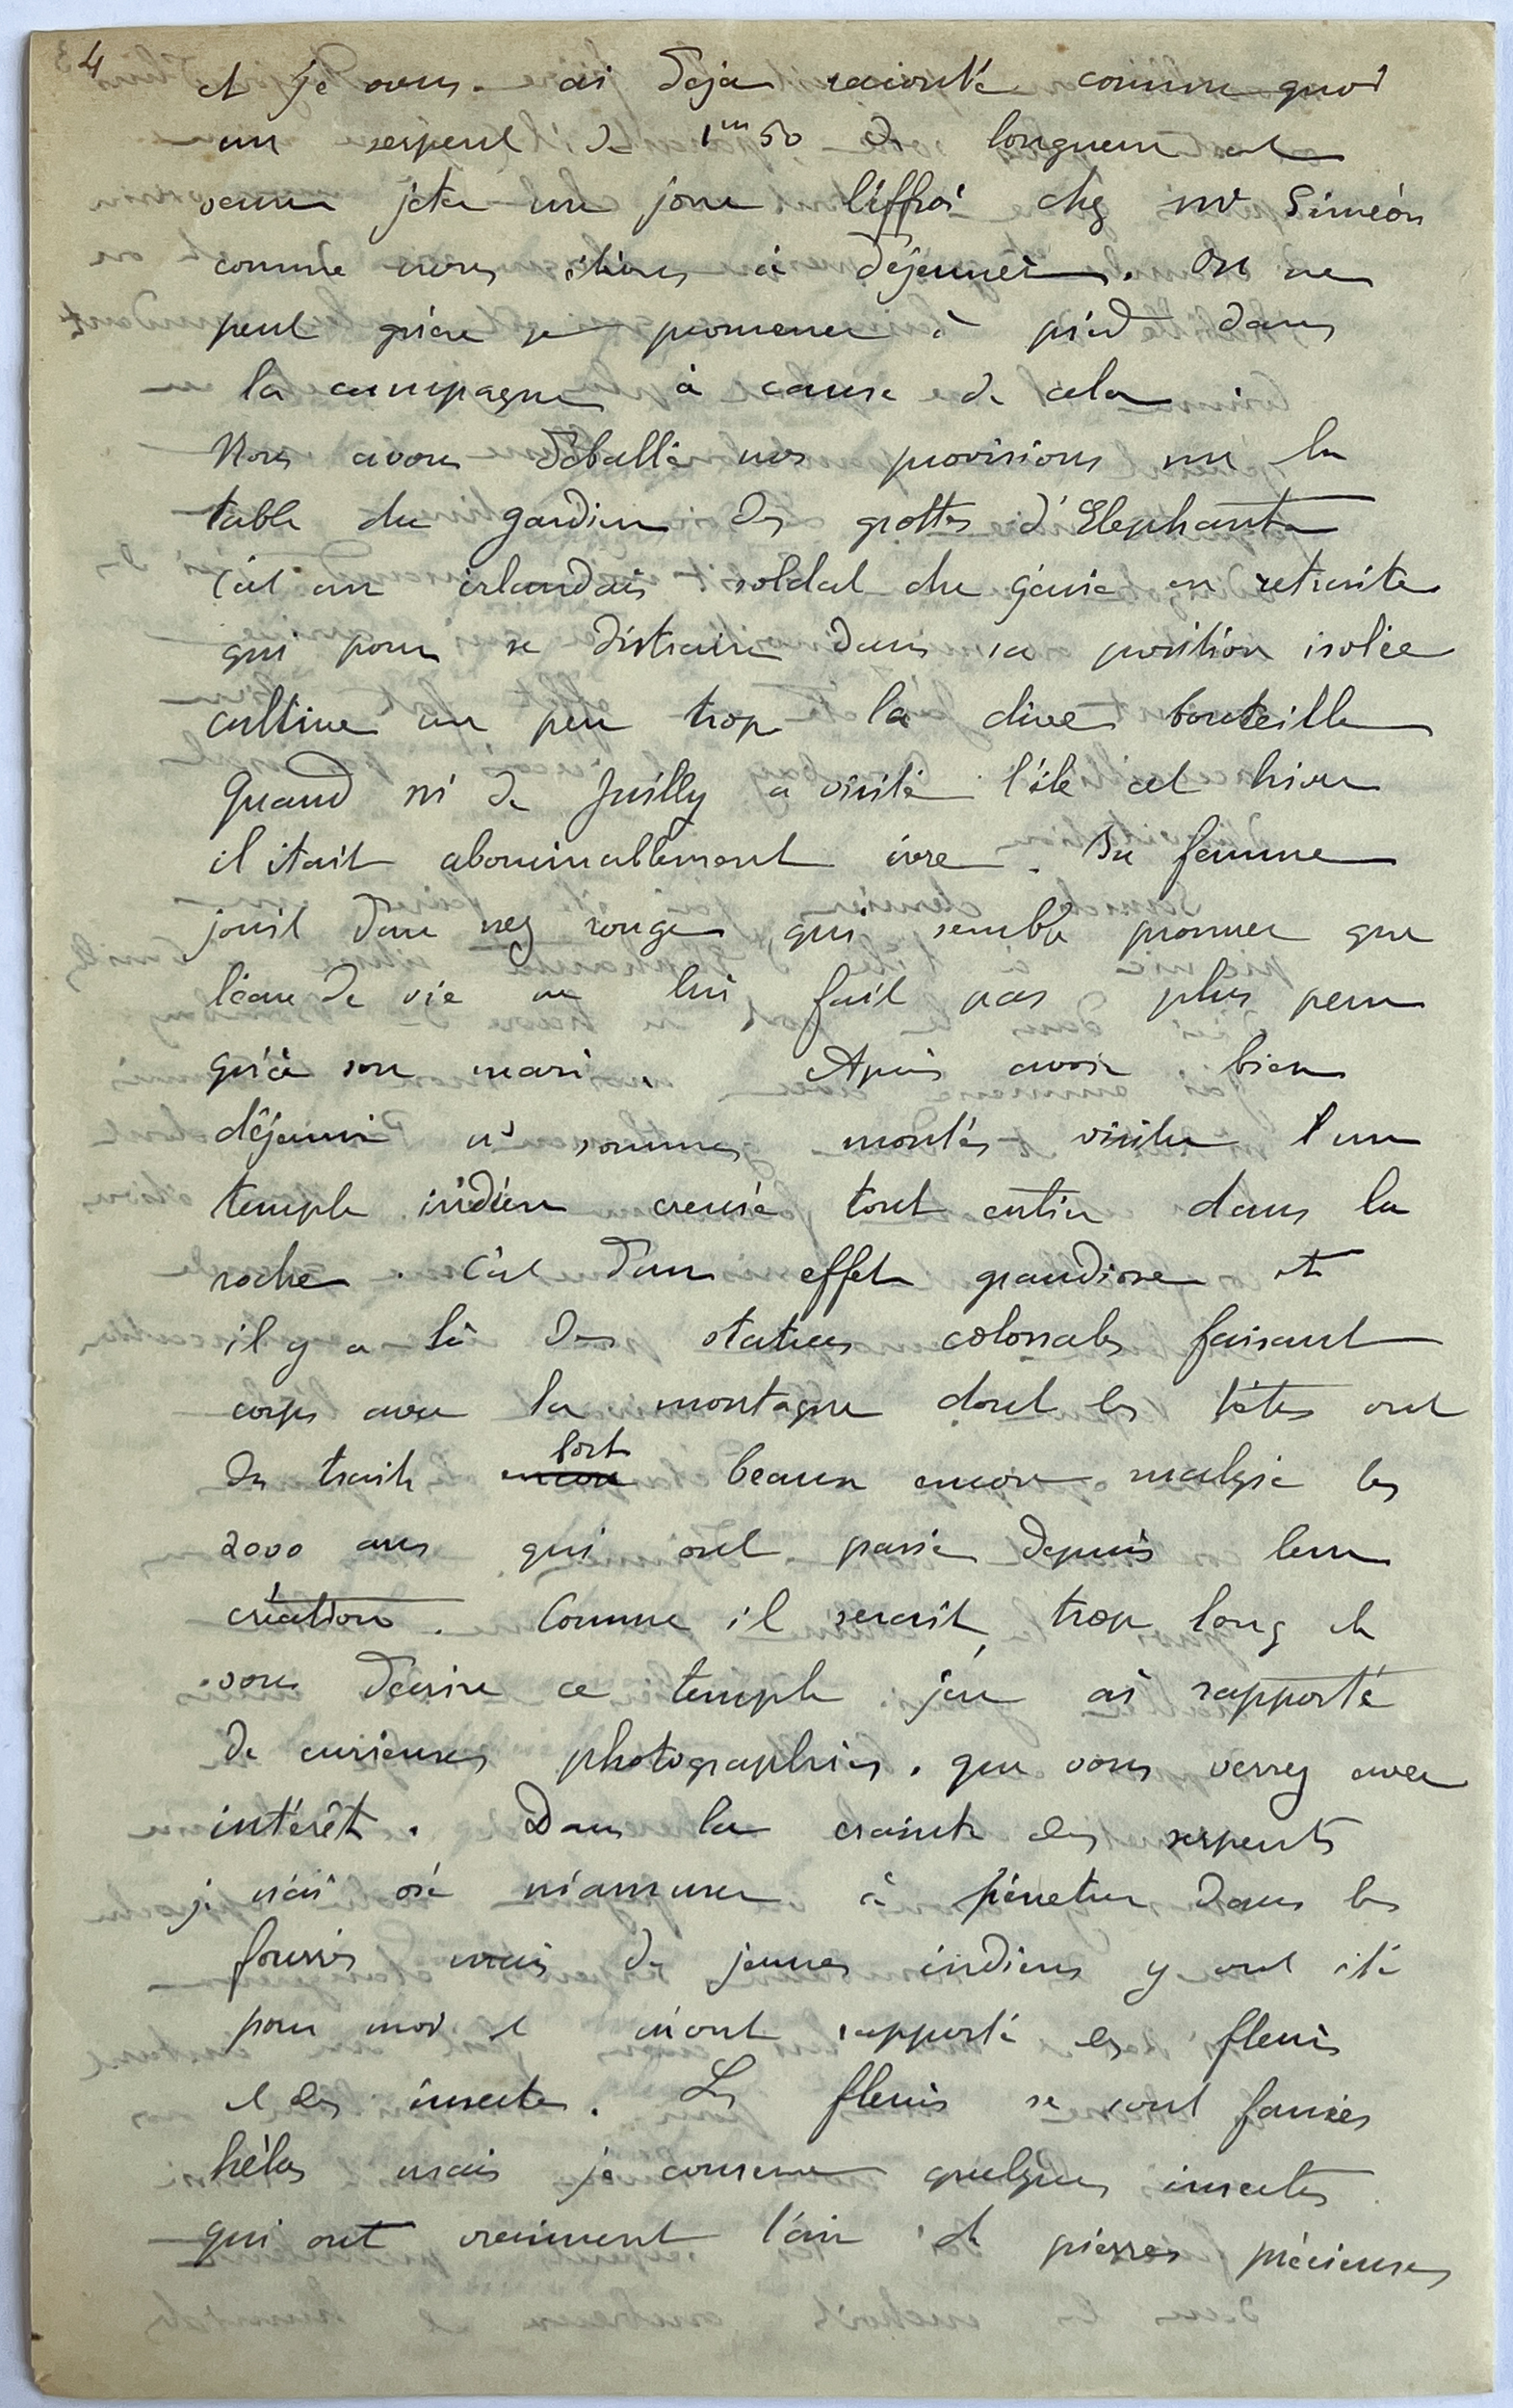 4
et je vous ai déja raconté comme quoi
un serpent de 1m50 de longueur est
venu jeter un jour l'effroi chez mr Siméon
comme nous étions à déjeuner. On ne
peut guère se promener à pied dans
la campagne à cause de cela
Nous avons déballé nos provisions sur la
table du gardien des grottes d'Elephanta
C'est un irlandais soldat du génie en retraite
qui pour se distraire dans sa position isolée
cultive un peu trop la dive bouteille
Quand mr de Juilly a visité l'île cet hiver
il était abominablement ivre. Sa femme
jouit d'un nez rouge qui semble prouver que
l'eau de vie ne lui fait pas plus peur
qu'à son mari. Après avoir bien
déjeuné ns sommes montés visiter l'un
temple indien creusé tout entier dans la
roche. C'est d'un effet grandiose et
il y a là des statues colossales faisant
corps avec la montagne dont les têtes ont
des traits encore fort beaux encore malgré les
2000 ans qui ont passé depuis leur
création. Comme il serait trop long de
vous décrire ce temple j'en ai rapporté
de curieuses photographies. que vous verrez avec
intérêt. Dans la crainte des serpents
je n'ai osé m'amuser à pénétrer dans les
fourrés mais de jeunes indiens y ont été
pour moi et m'ont rapporté des fleurs
et des insectes. Les fleurs se sont fanées
hélas mais je conserve quelques insectes
qui ont vraiment l'air de pierres précieuses